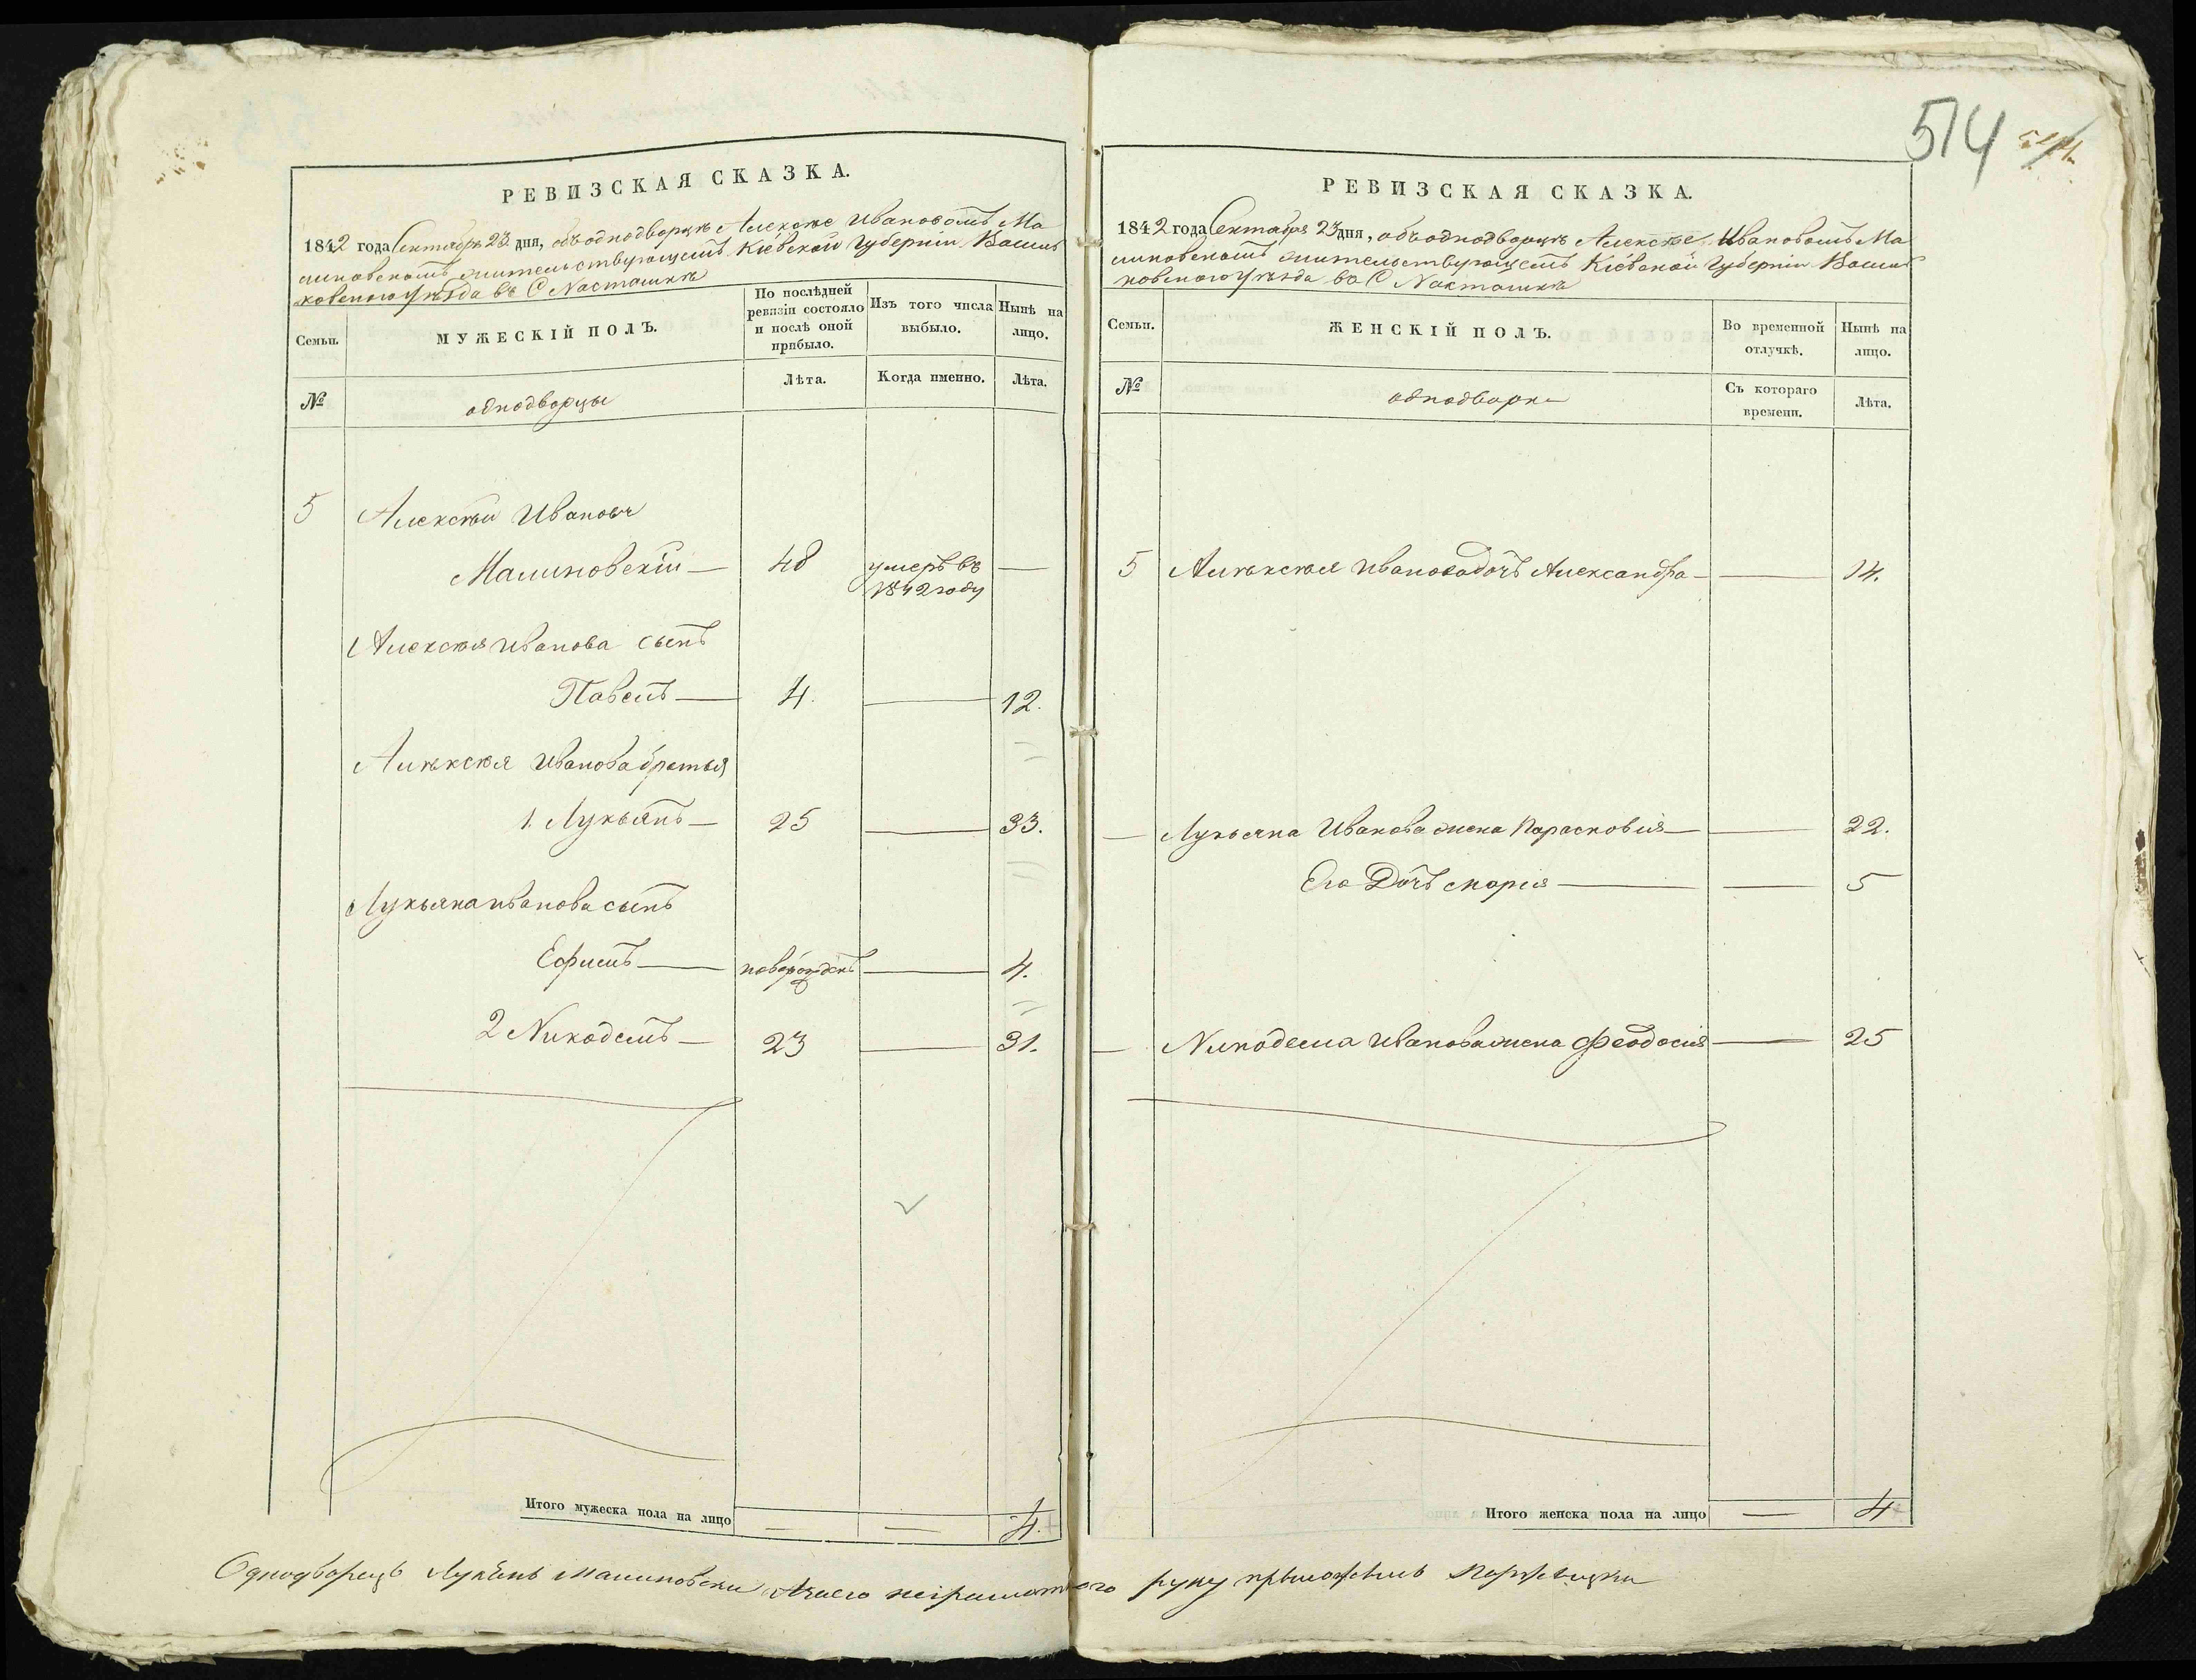 РЕВИЗСКАЯ СКАЗКА.
1842 года Сентября 23 дня, объ однодворцѣ Алексѣе Ивановомъ Ма
линовскомъ жительствующемъ Кіевской Губерніи Василь
ковского уѣзда въ С Насташки
Семьи.
МУЖЕСКІЙ ПОЛЪ.
По послѣдней
ревизіи состояло
и послѣ оной
прибыло.
Изъ того числа
выбыло.
Нынѣ на
лицо.
№
однодворцы
Лѣта.
Когда именно.
Лѣта.
5 Алексѣй Иванович
Малиновскій — 48 умеръ въ —
1842 году
Алексѣя Иванова сынъ
Павелъ — 4. — 12.
Алѣксѣя Иванова братья
1. Лукьянъ — 25 — 33.
Лукьяна Иванова сынъ
Ефимъ — новорожденъ — 4.
2 Никодемъ — 23 — 31.
Итого мужеска пола на лицо — — 4.
514
РЕВИЗСКАЯ СКАЗКА.
1842 года Сентября 23 дня, объ однодворцѣ Алексѣе Ивановомъ Ма
линовскомъ жительствующемъ Кіевской Губерніи Василь
ковского уѣзда въ С Насташки
Семьи.
ЖЕНСКІЙ ПОЛЪ.
Во временной
отлучкѣ.
Нынѣ на
лицо.
№
однодворки
Съ котораго
времени.
Лѣта.
5 Алѣксѣя Иванова дочъ Александра — — 14.
— Лукьяна Иванова жена Парасковія — — 22.
Его Дочъ Марія — — 5
— Никодема Иванова жена Феодосия — 25
Итого женска пола на лицо — 4
Однодворецъ Лукянъ Малиновски неграмотного руку приложилъ